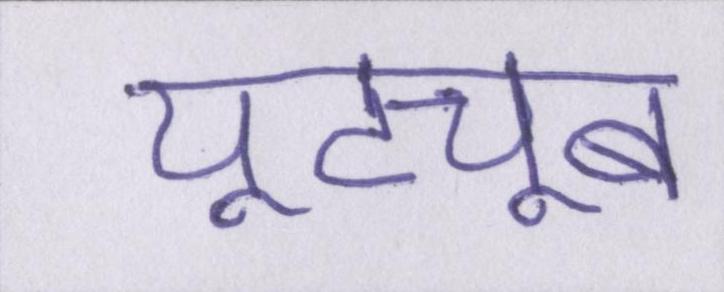 यूट्यूब